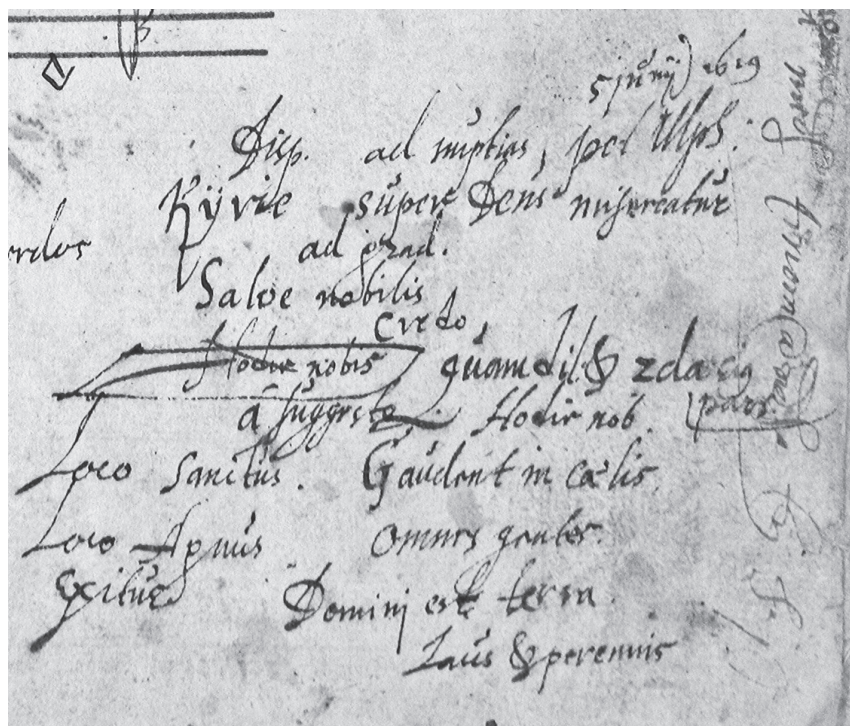 5 junij 1619
Disp. ad nuptias, per Ulph:
Kyrie super Deus misereatur
ad grad.
Salve nobilis
Credo,
Hodie nobis Quam dil. & 2da eig
pars.
a suggestu Hodie nob.
Loco Sanctus. Gaudent in cælis.
Loco Agnus Omnes gentes.
Exitus Domini est terra
Laus & perennis
ordus